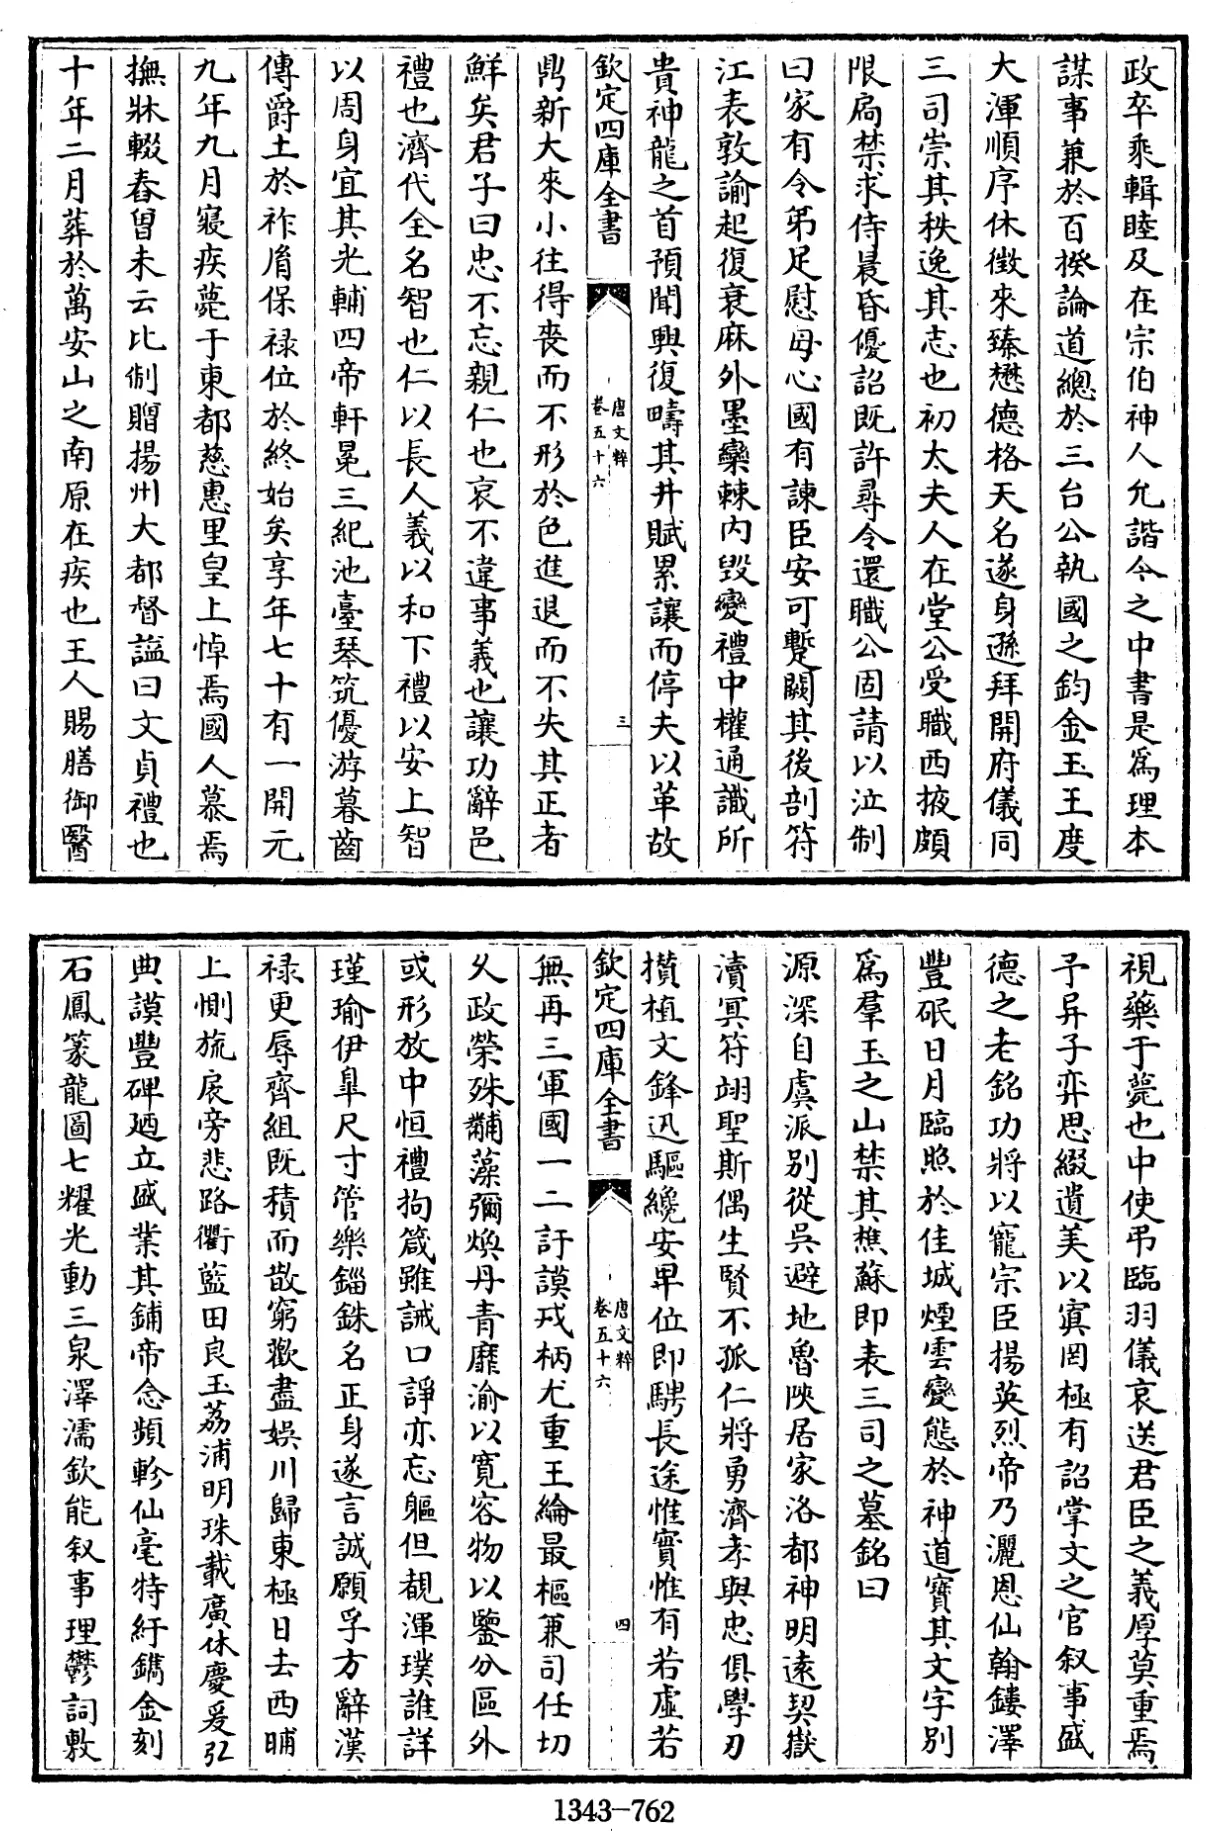 政卒乘輯睦及在宗伯神人允諧今之中書是為理本
謀事兼於百揆論道總於三台公執國之鈞金玉王度
大渾順序休徵來臻懋德格天名遂身遜拜開府儀同
三司崇其秩逸其志也初太夫人在堂公受職西掖頗
限扃禁求侍晨昏優詔既許尋令還職公固請以泣制
曰家有令弟足慰母心國有諫臣安可蹔闕其後剖符
江表敦諭起復衰麻外墨欒棘内毀變禮中權通識所
貴神龍之首預聞興復疇其井賦累讓而停夫以革故
欽定四庫全書
唐文粹
卷五十六
三
鼎新大來小往得喪而不形於色進退而不失其正者
鮮矣君子曰忠不忘親仁也哀不違事義也讓功辭邑
禮也濟代全名智也仁以長人義以和下禮以安上智
以周身宜其光輔四帝軒冕三紀池臺琴筑優游暮齒
傳爵土於祚胤保禄位於終始矣享年七十有一開元
九年九月寢疾薨于東都慈惠里皇上悼焉國人慕焉
撫牀輟舂曾未云比制贈揚州大都督諡曰文貞禮也
十年二月葬於萬安山之南原在疾也王人賜膳御醫
視藥于薨也中使弔臨羽儀哀送君臣之義厚莫重焉
予昇子弈思綴遺美以寘罔極有詔掌文之官叙事盛
德之老銘功將以寵宗臣揚英烈帝乃灑恩仙翰鏤澤
豐珉日月臨照於佳城煙雲變態於神道寶其文字别
為羣玉之山禁其樵蘇即表三司之墓銘曰
源深自虞派别從吳避地魯陜居家洛都神明遠契嶽
瀆冥符翊聖斯偶生賢不孤仁將勇濟孝與忠俱學刃
攢植文鋒迅驅纔安卑位即騁長途惟實惟有若虛若
欽定四庫全書
唐文粹
卷五十六
四
無再三軍國一二訏謨戎柄尤重王綸最樞兼司任切
乆政榮殊黼藻彌煥丹青靡渝以寛容物以鑒分區外
或形放中恒禮拘箴雖誡口諍亦忘軀但覩渾璞誰詳
瑾瑜伊臯尺寸管樂錙銖名正身遂言誠願孚方辭漢
禄更辱齊組既積而散窮歡盡娱川歸東極日去西晡
上惻旒扆旁悲路衢藍田良玉荔浦明珠載廣休慶爰弘
典謨豐碑廼立盛業其鋪帝念頻軫仙毫特紆鐫金刻
石鳳篆龍圖七耀光動三泉澤濡欽能叙事理鬱詞敷
1343-762